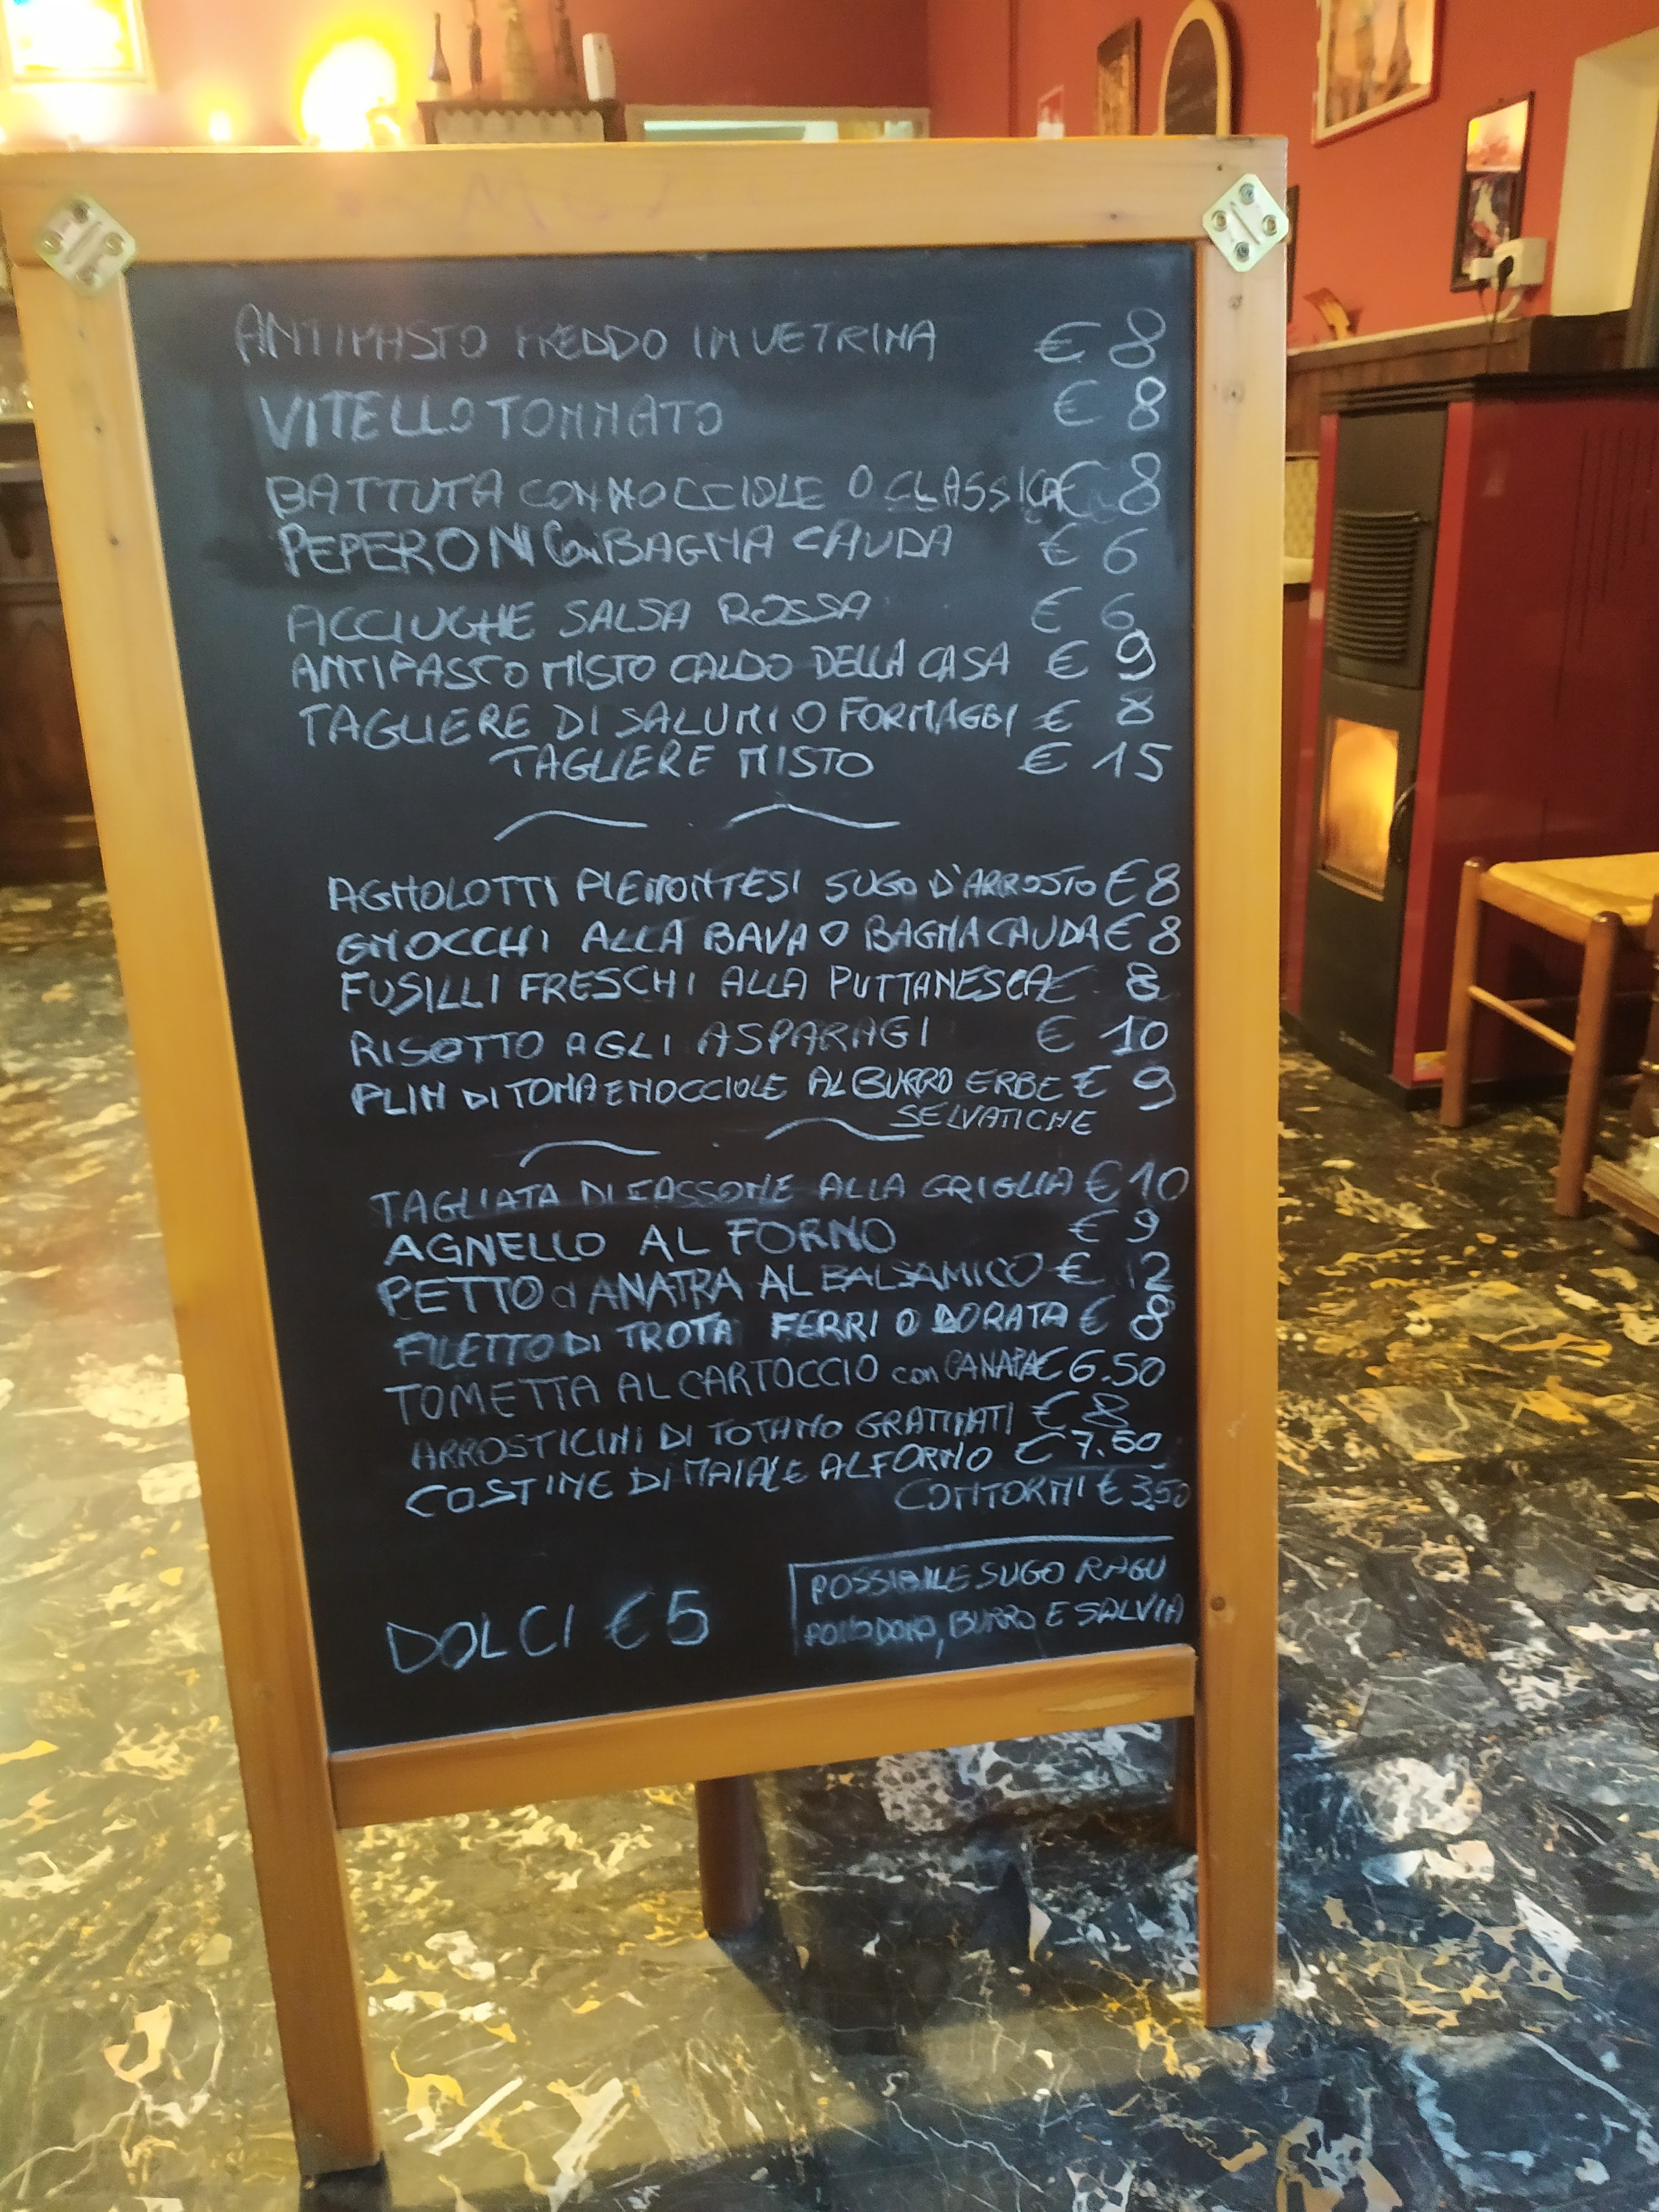 ANTIPASTO FREDDO IN VETRINA € 8
VITELLO TONNATO € 8
BATTUTA CON NOCCIOLE O CLASSICA € 8
PEPERONI Con BAGNA CAUDA € 6
ACCIUGHE SALSA ROSSA € 6
ANTIPASTO MISTO CALDO DELLA CASA € 9
TAGLIERE DI SALUMI O FORMAGGI € 8
TAGLIERE MISTO € 15
AGNOLOTTI PIEMONTESI SUGO D'ARROSTO € 8
GNOCCHI ALLA BAVA O BAGNA CAUDA € 8
FUSILLI FRESCHI ALLA PUTTANESCA € 8
RISOTTO AGLI ASPARAGI € 10
PLIN DI TOMA E NOCCIOLE AL BURRO ERBE € 9
SELVATICHE
TAGLIATA DI FASSONE ALLA GRIGLIA € 10
AGNELLO AL FORNO € 9
PETTO d ANATRA AL BALSAMICO € 12
FILETTO DI TROTA FERRI O DORATA € 8
TOMETTA AL CARTOCCIO con CANAPA € 6.50
ARROSTICINI DI TOTANO GRATINATI € 8
COSTINE DI MAIALE AL FORNO € 7.50
CONTORNI € 3,50
DOLCI € 5
POSSIBILE SUGO RAGU
POMODORO, BURRO E SALVIA